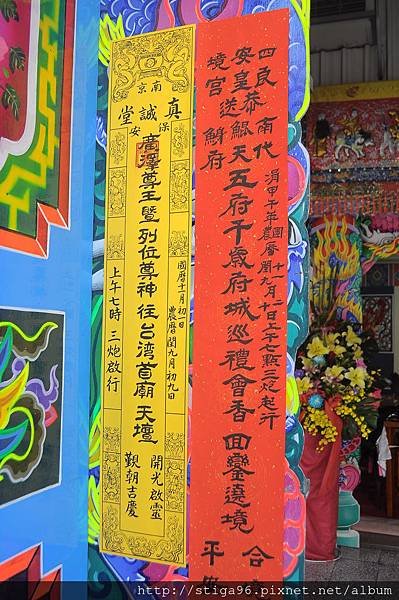 四民恭南代
安皇送鯤天五府千歲府城巡禮會香回鑾遶境
境宮 鯓府
涓甲午年農曆閏九月十日上午七點三炮起行
國曆十一月一日
合
平安
南京
真誠堂
保安
廣澤尊王暨列位尊神往台湾首廟天壇
國曆十一月初一日
農曆閏九月初九日
上午七時三炮啟行
開光啟靈
觐朝吉慶
http://stiga96.pixnet.net/album